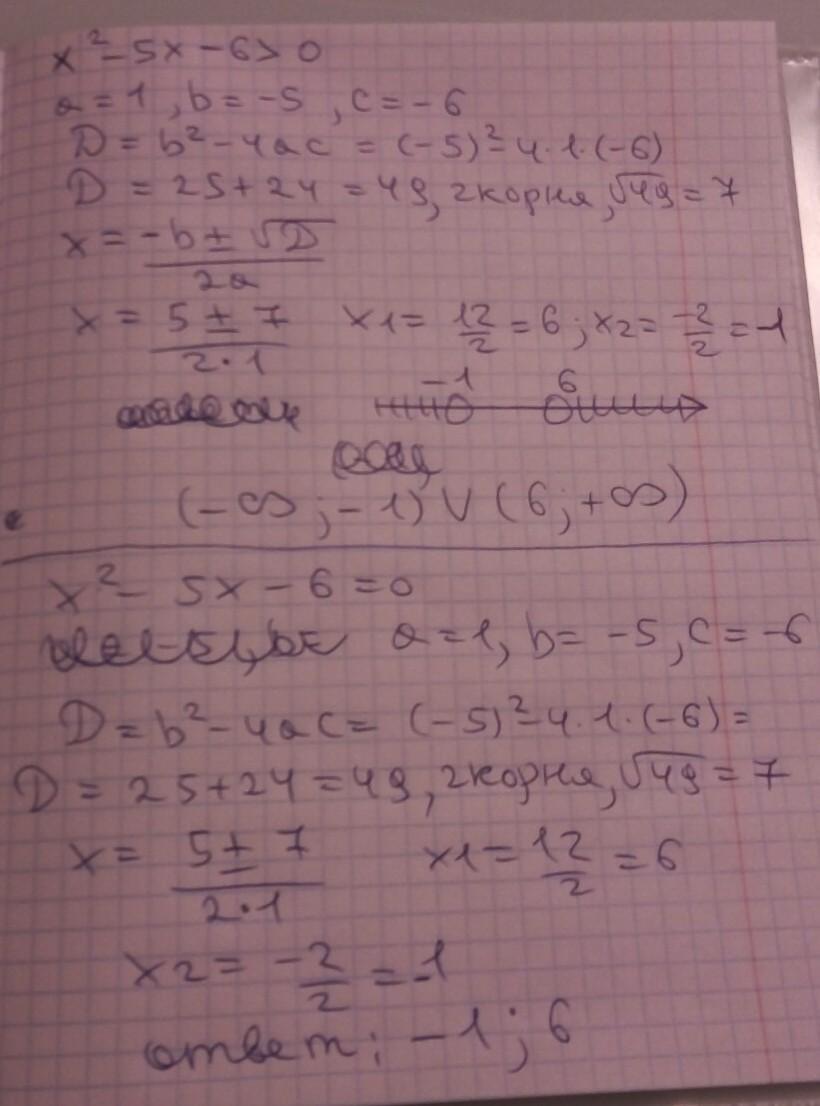 x² - 5x - 6 > 0
a = 1, b = -5, c = -6
D = b² - 4ac = (-5)² - 4·1·(-6)
D = 25 + 24 = 49, 2 корня, √49 = 7
x = (-b ± √D) / 2a
x = (5 ± 7) / (2·1) x1 = 12/2 = 6; x2 = -2/2 = -1
-1 6
(-∞; -1) ∪ (6; +∞)
x² - 5x - 6 = 0
a = 1, b = -5, c = -6
D = b² - 4ac = (-5)² - 4·1·(-6) =
D = 25 + 24 = 49, 2 корня, √49 = 7
x = (5 ± 7) / (2·1) x1 = 12/2 = 6
x2 = -2/2 = -1
ответ: -1; 6